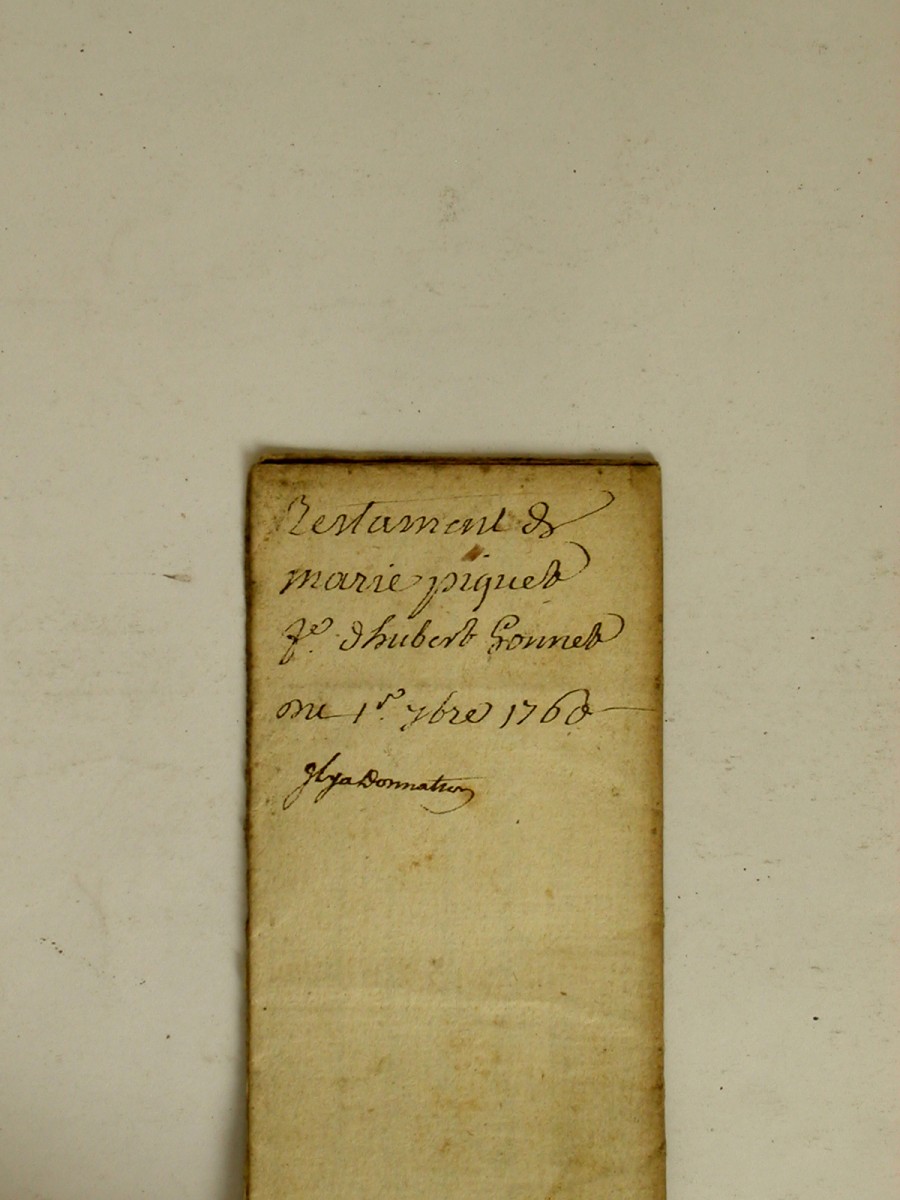 Testament de
marie piquet
fe. dhubert Gonnet
du 1er. 7bre 1760
il ya Donnation